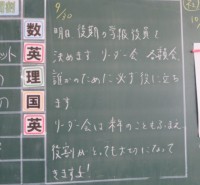 9/30
明日 後期の学級役員を
決めます リーダー会 合議会
誰かのために必ず役に立ち
ます
リーダー会は 科のこともふまえ
役割がとっても大切になって
きますよ!
数
英
理
国
英
ット
の
の